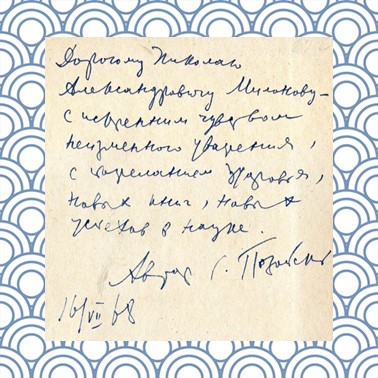 Дорогому Николаю
Александровичу Милонову –
с искренним чувством
неизменного уважения,
с пожеланием здоровья,
новых книг, новых
успехов в науке.
Автор С.
16/VII 68